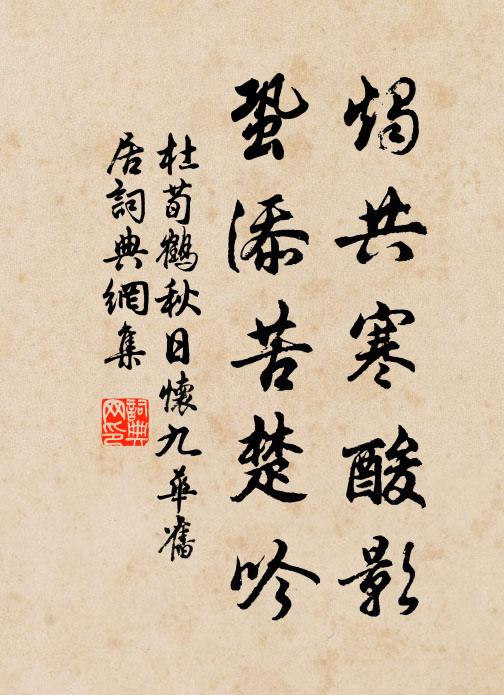 燭共寒酸影
蛩添苦楚吟
杜荀鶴秋日懷九華舊
居詞典網集
詞典
网印